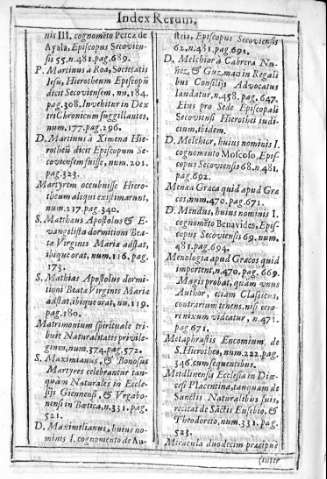 Index Rerum.
nis III. cognomẽto Perez de
Ayala, Episcopus Secovien-
sis 55. n. 481. pag. 689.
P. Martinus à Roa, Societatis
Iesu, Hierotheum Episcopũ
dicit Secoviensem, nu. 184.
pag. 308. Invehitur in Dex
tri Chronicum suggillantes,
num. 177. pag. 296.
D. Martinus à Ximena Hie-
rotheũ dicit Episcopum Se-
coviensem fuisse, num. 201.
pag. 323.
Martyrem occubuisse Hiero-
theum aliqui existimarunt,
num. 217. pag. 340.
S. Matthæus Apostolus & E-
vangelista dormitioni Bea-
tæ Virginis Mariæ adstat,
ibique orat, num. 116. pag.
173.
S. Mathias Apostolus dormi-
tioni Beatæ Virginis Mariæ
adstat, ibique orat, nu. 119.
pag. 180.
Matrimonium spirituale tri-
buit Naturalitatis privile-
gium, num. 374. pag. 572.
S. Maximianus, & Bonosus
Martyres celebrantur tan-
quam Naturales in Eccle-
sijs Giennensi, & Vergabo-
nensi in Bætica, n. 331. pag.
521.
D. Maximilianus, huius no-
minis I. cognomento de Au-
stria, Episcopus Secoviensis
62. n. 481. pag. 691.
D. Melchior à Cabrera Nu-
ñez, & Guzman in Regali
bus Consilijs Advocatus
laudatur, n. 458. pag. 647.
Eius pro Sede Episcopali
Secoviensi Hierothei iudi-
cium, ibidem.
D. Melchior, huius nominis I.
cognomento Moscoso, Epis-
copus Secoviensis 68. n. 481.
pag. 692.
Menæa Græca quid apud Græ
cos, num. 470. pag. 671.
D. Mendus, huius nominis I.
cognomẽto Benavides, Epis-
copus Secoviensis 69. num.
481. pag. 694.
Menologia apud Græcos quid
importent, n. 470. pag. 669.
Magis probat, quàm unus
Author, etiam Classicus,
contrarium tenens, nisi cœ-
ra nimium videatur, n. 471.
pag. 671.
Metaphrastis Encomium de
S. Hierotheo, num. 222. pag.
346. cum sequentibus.
Mediolanensis Ecclesia in Diœ-
cesi Placentina, tanquam de
Sanctis Naturalibus suis,
recitat de Sãctis Eusebio, &
Theodoreto, num. 331. pag.
523.
Miracula duodecim præcipuè
(inter